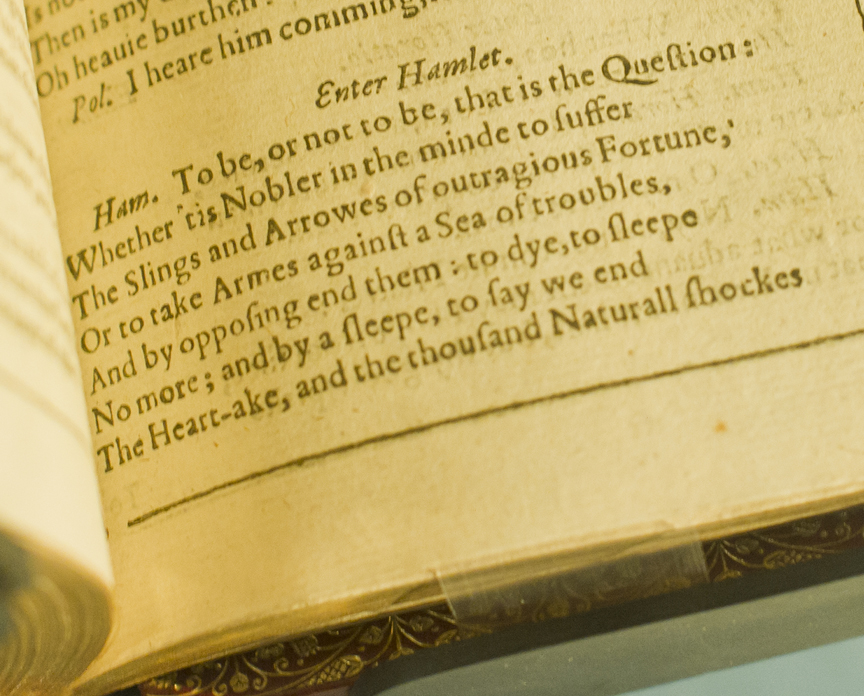 Then is my
Oh heauie burthen
Pol. I heare him comming,
Enter Hamlet.
Ham. To be, or not to be, that is the Queſtion:
Whether 'tis Nobler in the minde to ſuffer
The Slings and Arrowes of outragious Fortune,
Or to take Armes againſt a Sea of troubles,
And by oppoſing end them: to dye, to ſleepe
No more; and by a ſleepe, to ſay we end
The Heart-ake, and the thouſand Naturall ſhockes